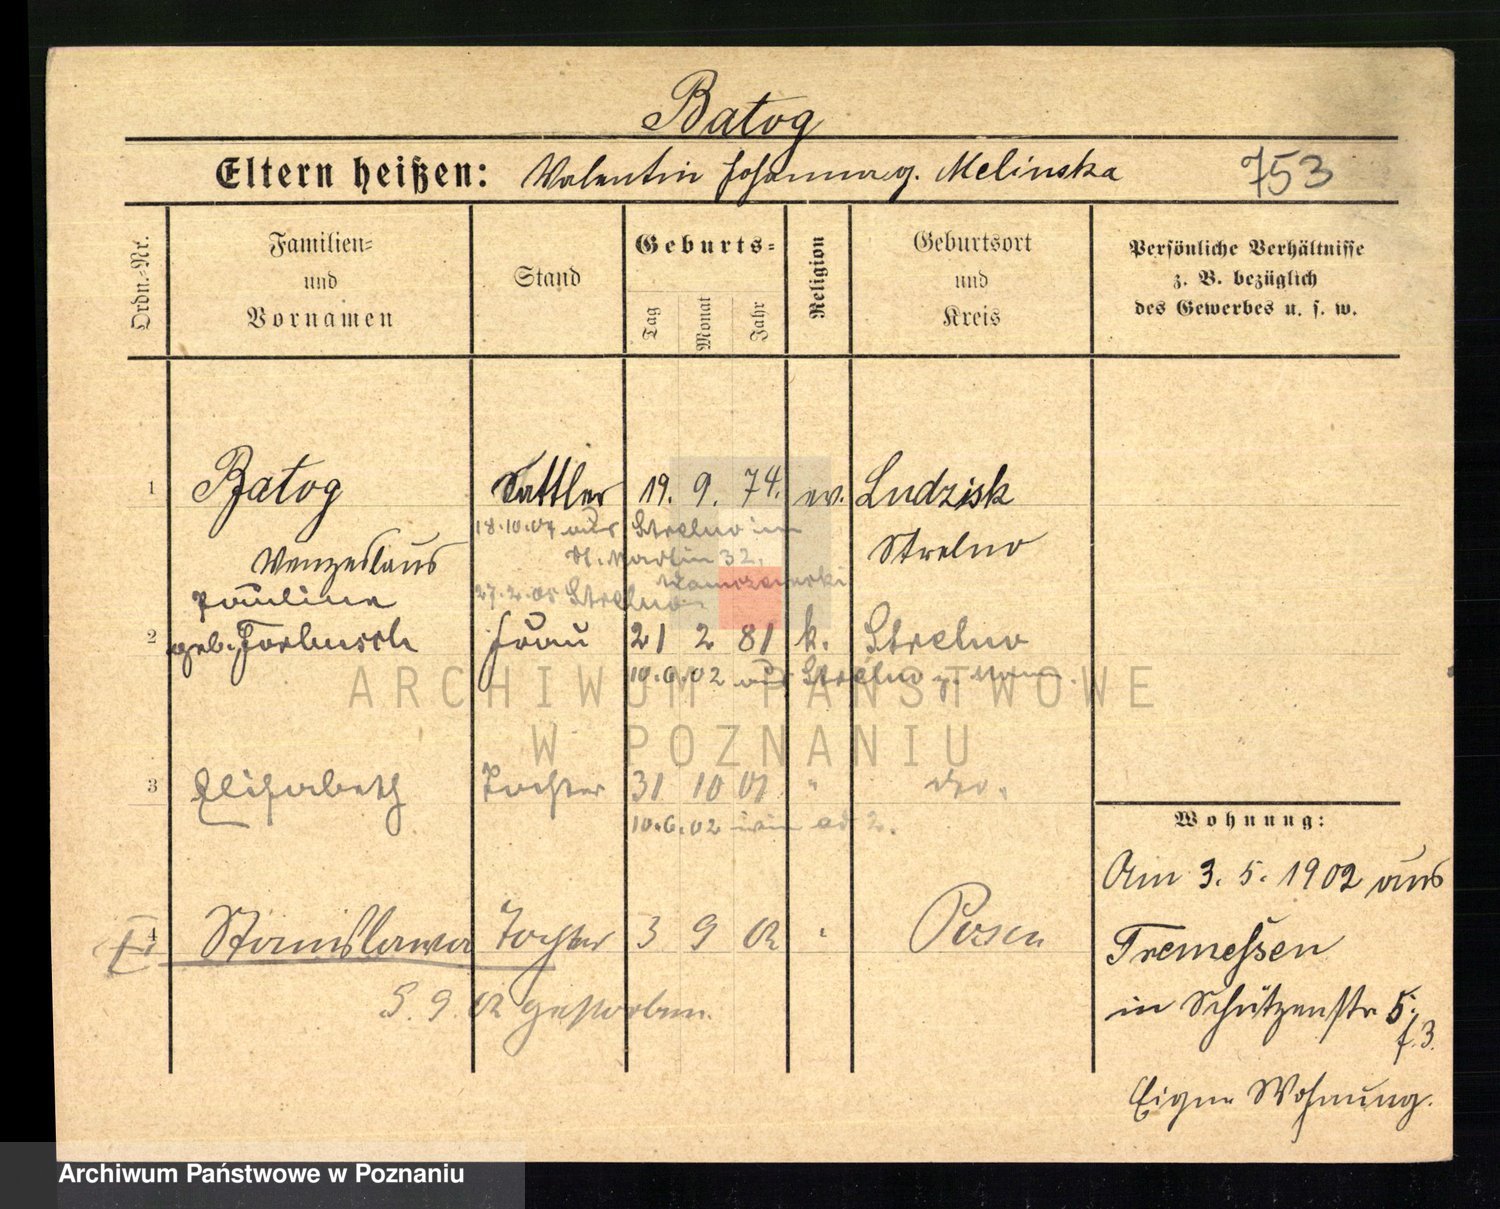 Batog
Eltern heißen: Valentin Johanna g. Melinska 753
Ordn.-Nr.
Familien-
und
Vornamen
Stand
Geburts-
Tag
Monat
Jahr
Religion
Geburtsort
und
Kreis
Persönliche Verhältnisse
z. B. bezüglich
des Gewerbes u. s. w.
1 Batog Sattler 19. 9. 74. ev. Ludzisk
18.10.04 aus Strelno in
Wenzeslaus Strelno
St. Martin 32,
Pauline 27.2.05 Strelno
2 geb. Frau 21 2 81 k. Strelno
10.6.02 aus Strelno z. Mann.
ARCHIWUM PAŃSTWOWE
W POZNANIU
3 Elisabeth Tochter 31 10 01 " do.
10.6.02 wie ad 2.
4 Stanislawa Tochter 3 9 02 " Posen
5. 9. 02 gestorben.
Wohnung:
Am 3. 5. 1902 aus
Tremessen
in Schützenstr 5.
f. 3.
Eigene Wohnung.
Archiwum Państwowe w Poznaniu